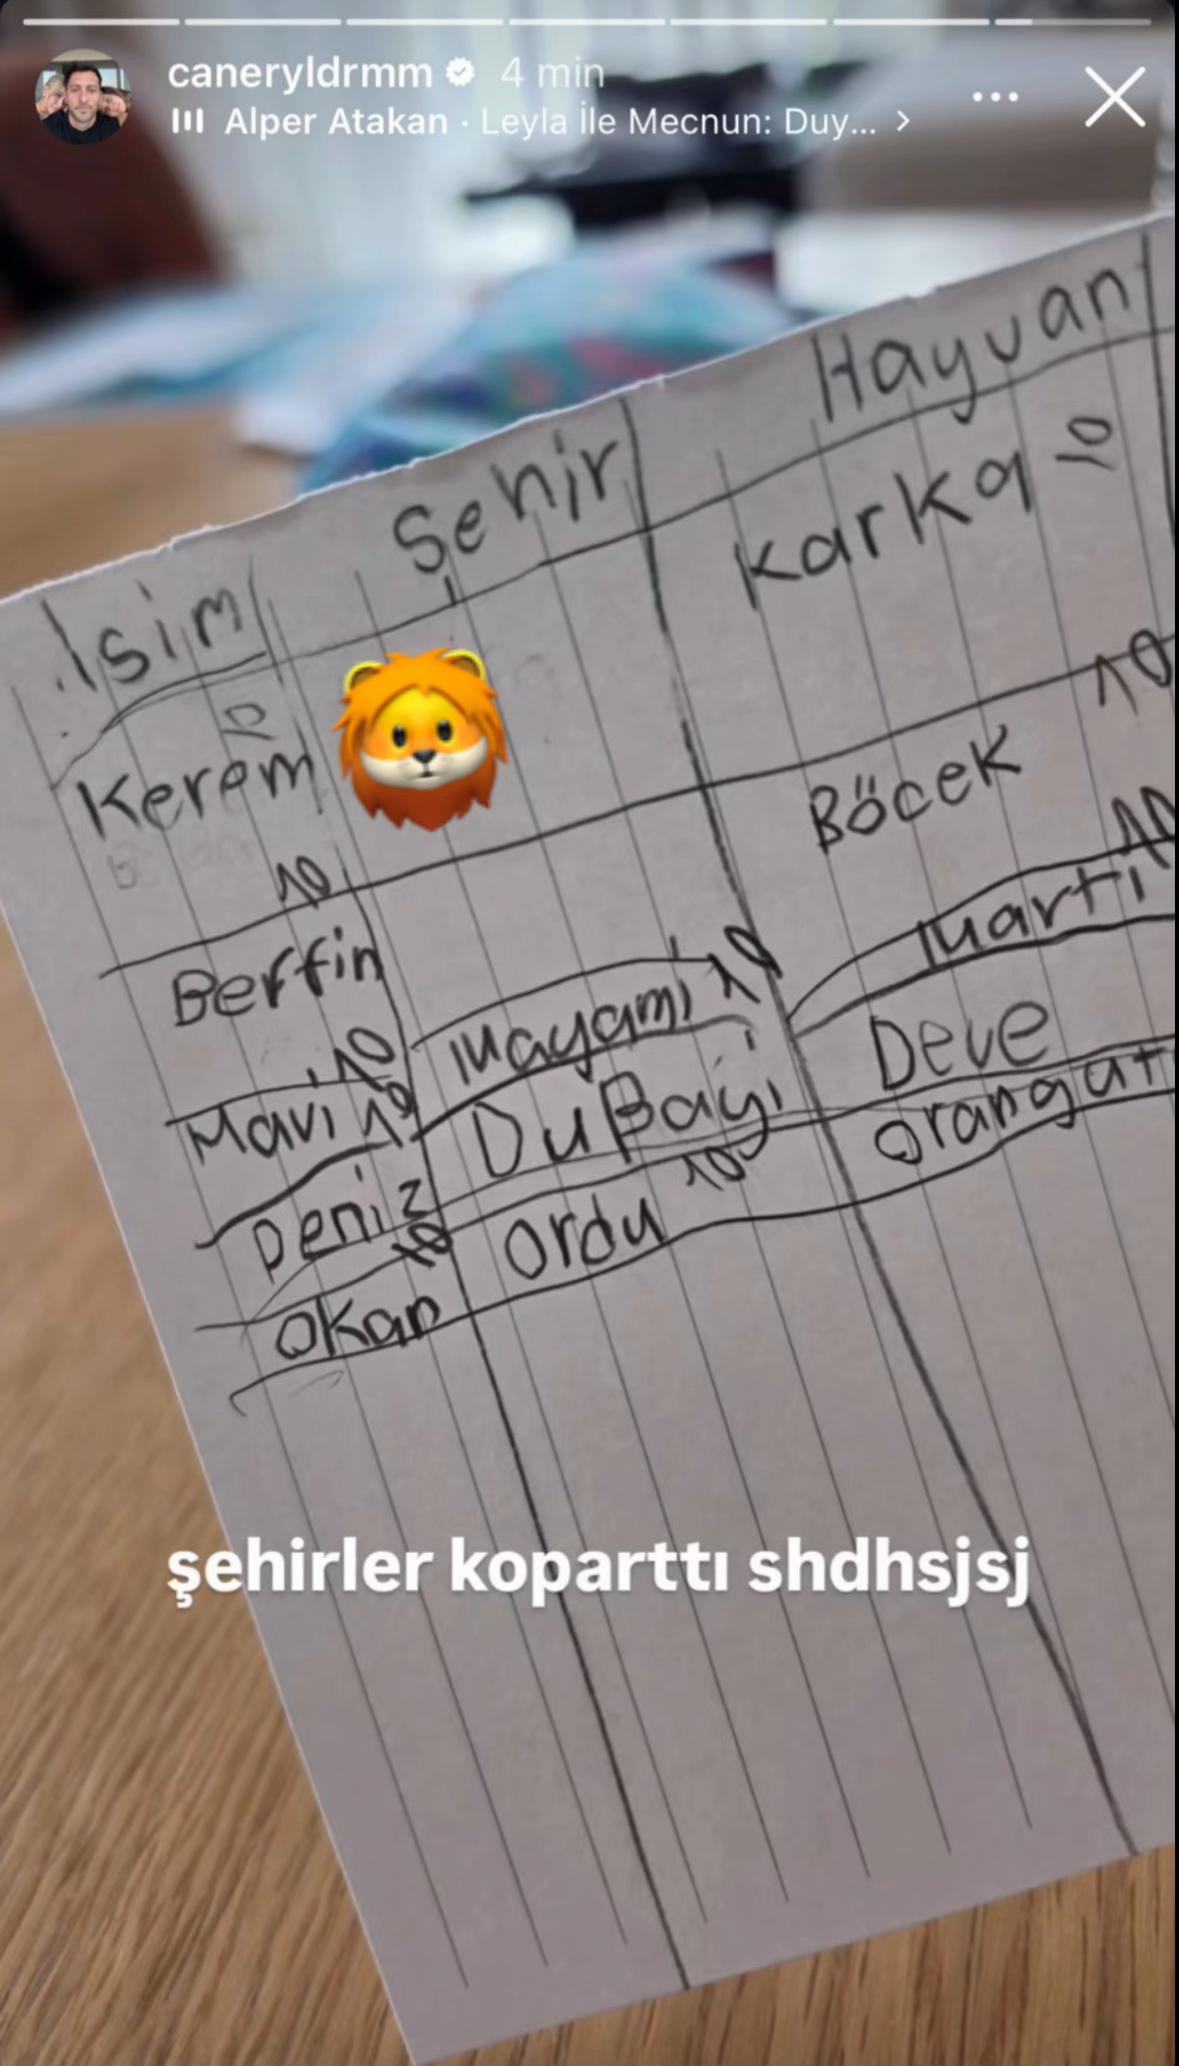 caneryldrmm 4 min
Alper Atakan · Leyla İle Mecnun: Duy...
İsim Şehir Hayvan
Kerem 10 karka 10
Berfin 10 Böcek 10
Mavi 10 Mayami 10 Martı 10
Deniz 10 DuBayi Deve
Okan 10 Ordu 10 orangut
şehirler koparttı shdhsjsj